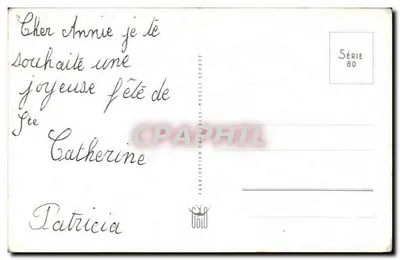 Cher Annie je te
souhaite une
joyeuse fête de
Ste
Catherine
Patricia
SÉRIE
80
CPAPHIL